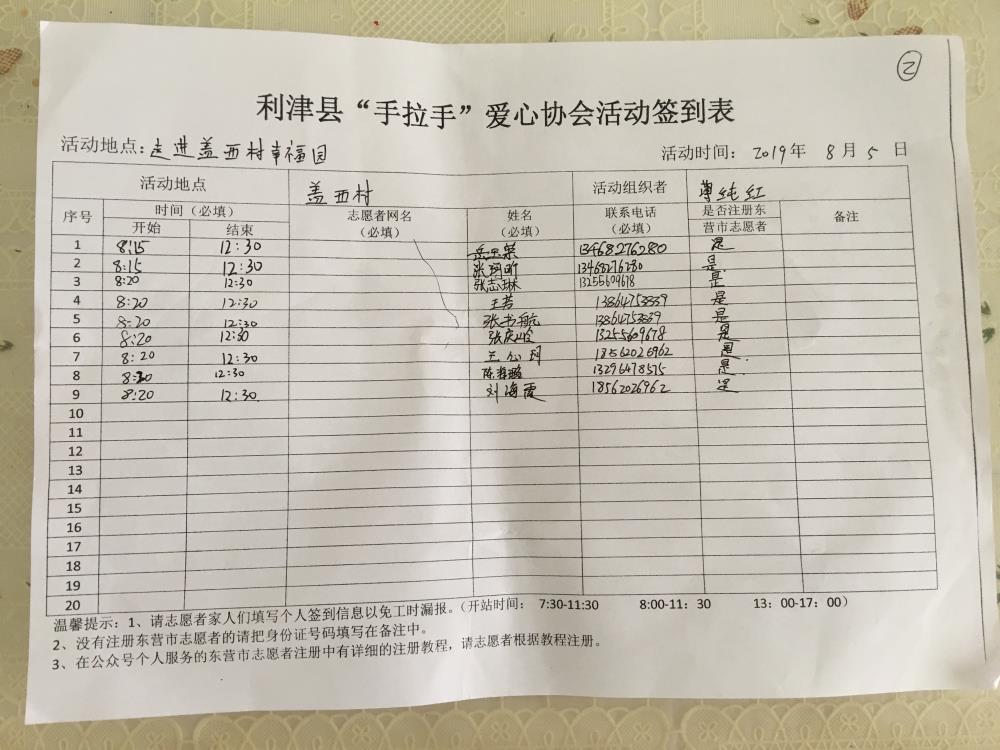 ②
利津县“手拉手”爱心协会活动签到表
活动地点：走进盖西村幸福园 活动时间： 2019年 8月5日
活动地点 盖西村 活动组织者 薄纯红
序号 时间（必填） 志愿者网名（必填） 姓名（必填） 联系电话（必填） 是否注册东营市志愿者 备注
开始 结束
1 8:15 12:30 13468276280 是
2 8:15 12:30 张珂昕 13468276280 是
3 8:20 12:30 张志琳 13255609678 是
4 8:20 12:30 王芳 13864753839 是
5 8:20 12:30 张书航 13864753839 是
6 8:20 12:30 张庆岭 13255609678 是
7 8:20 12:30 18562026962 是
8 8:20 12:30 13296478575 是
9 8:20 12:30 刘海霞 18562026962 是
10
11
12
13
14
15
16
17
18
19
20
温馨提示：1、请志愿者家人们填写个人签到信息以免工时漏报。（开站时间： 7:30-11:30 8:00-11：30 13：00-17：00）
2、没有注册东营市志愿者的请把身份证号码填写在备注中。
3、在公众号个人服务的东营市志愿者注册中有详细的注册教程，请志愿者根据教程注册。